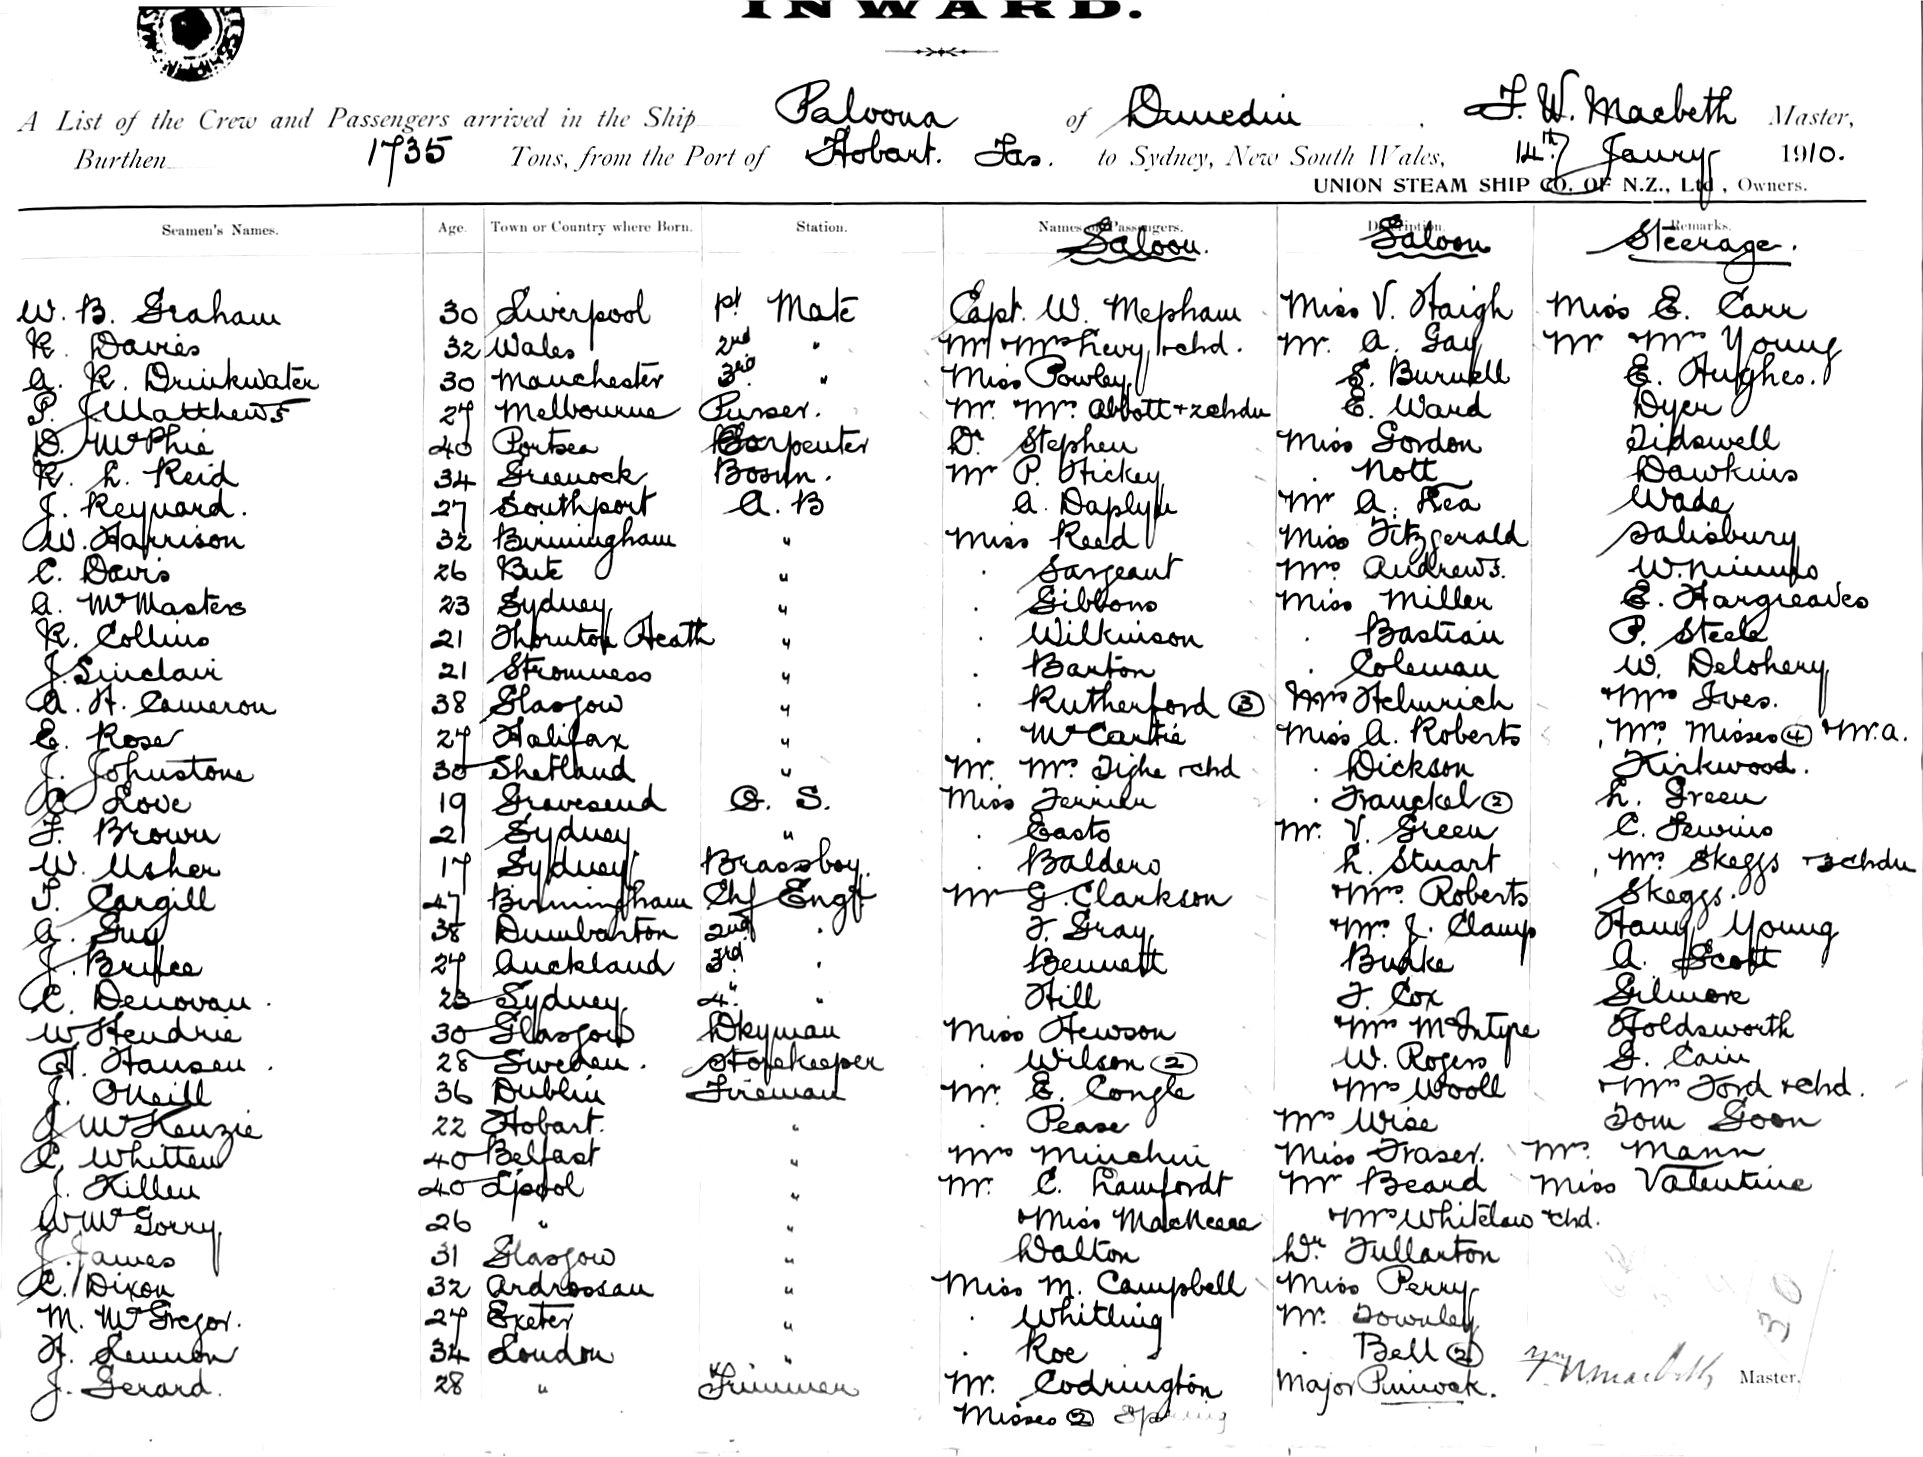 INWARD.
A List of the Crew and Passengers arrived in the Ship Paloona of Dunedin, F. W. Macbeth Master,
Burthen 1735 Tons, from the Port of Hobart. Tas. to Sydney, New South Wales, 14th Jaury 1910.
UNION STEAM SHIP CO. OF N.Z., Ltd, Owners.
Seamen's Names. Age. Town or Country where Born. Station. Names of Passengers. Description. Remarks.
Saloon. Saloon Steerage.
W. B. Graham 30 Liverpool 1st Mate Capt. W. Mepham Miss V. Haigh Miss E. Carr
R. Davies 32 Wales 2nd " Mr + Mrs Levy + chd. Mr. A. Gay Mr + Mrs Young
A. R. Drinkwater 30 Manchester 3rd " Miss Powley S. Burnell E. Hughes.
P. J. Matthews 27 Melbourne Purser. Mr. Mrs. Abbott + 2 chdn E. Ward Dyer
D. McPhie 40 Portsea Carpenter Dr Stephen Miss Gordon Tidswell
R. L. Reid 34 Greenock Bosun. Mr P. Hickey Nott Dawkins
J. Reynard. 27 Southport A. B A. Daplyn Mr A. Rea Wade
W. Harrison 32 Birmingham " Miss Reed Miss Fitzgerald Salisbury
C. Davis 26 Bute " Sargeant Mrs Andrews. W. Nimmo
A. McMasters 23 Sydney " Gibbons Miss Miller E. Hargreaves
R. Collins 21 Thornton Heath " Wilkinson Bastian P. Steele
J. Sinclair 21 Stromness " Barton Coleman W. Delohery
A. H. Cameron 38 Glasgow " Rutherford (3) Mrs Helmrich + Mrs Ives.
E. Rose 27 Halifax " McCartie Miss A. Roberts Mrs Misses (4) + Mr. A.
J. Johnstone 30 Shetland " Mr. Mrs Tighe + chd Dickson Kirkwood.
C. Love 19 Gravesend O. S. Miss Ferrier Franckel (2) L. Green
F. Brown 21 Sydney " Easto Mr. V. Green C. Lewins
W. Usher 17 Sydney Brassboy. Baldero L. Stuart Mrs Skeggs + 3 chdn
T. Cargill 47 Birmingham Chf Engr. Mr G. Clarkson + Mrs Roberts Skeggs.
A. Guy 38 Dumbarton 2nd " F. Gray + Mrs J. Clamp Young
J. Bruce 27 Auckland 3rd " Bennett Burke A. Scott
C. Denovan. 23 Sydney 4. " Hill F. Cox Gilmore
W Hendrie 30 Glasgow Dkyman Miss Hewson + Mrs McIntyre Holdsworth
H. Hansen. 28 Sweden. Storekeeper Wilson (2) W. Rogers G. Cain
J. ONeill 36 Dublin Fireman Mr. E. Congle + Mrs Wooll + Mrs Ford + chd.
J McKenzie 22 Hobart. " Pease Mrs Wise Tom Goon
C. Whitten 40 Belfast " Mrs Minchin Miss Fraser. Mrs. Mann
J. Killen 40 L'pool " Mr. C. Lamfordt Mr Beard Miss Valentine
W McGorry 26 " " + Miss + Mrs Whitelaw + chd.
J. James 31 Glasgow " Dalton Dr Fullarton
C. Dixon 32 Ardrossan " Miss M. Campbell Miss Perry
M. McGregor. 27 Exeter " Whitling Mr. Townley
H. Lennon 34 London " Roe Bell (2)
J. Gerard. 28 " Trimmer Mr. Codrington Major Pinnock. Master.
Misses (2) Spring
30